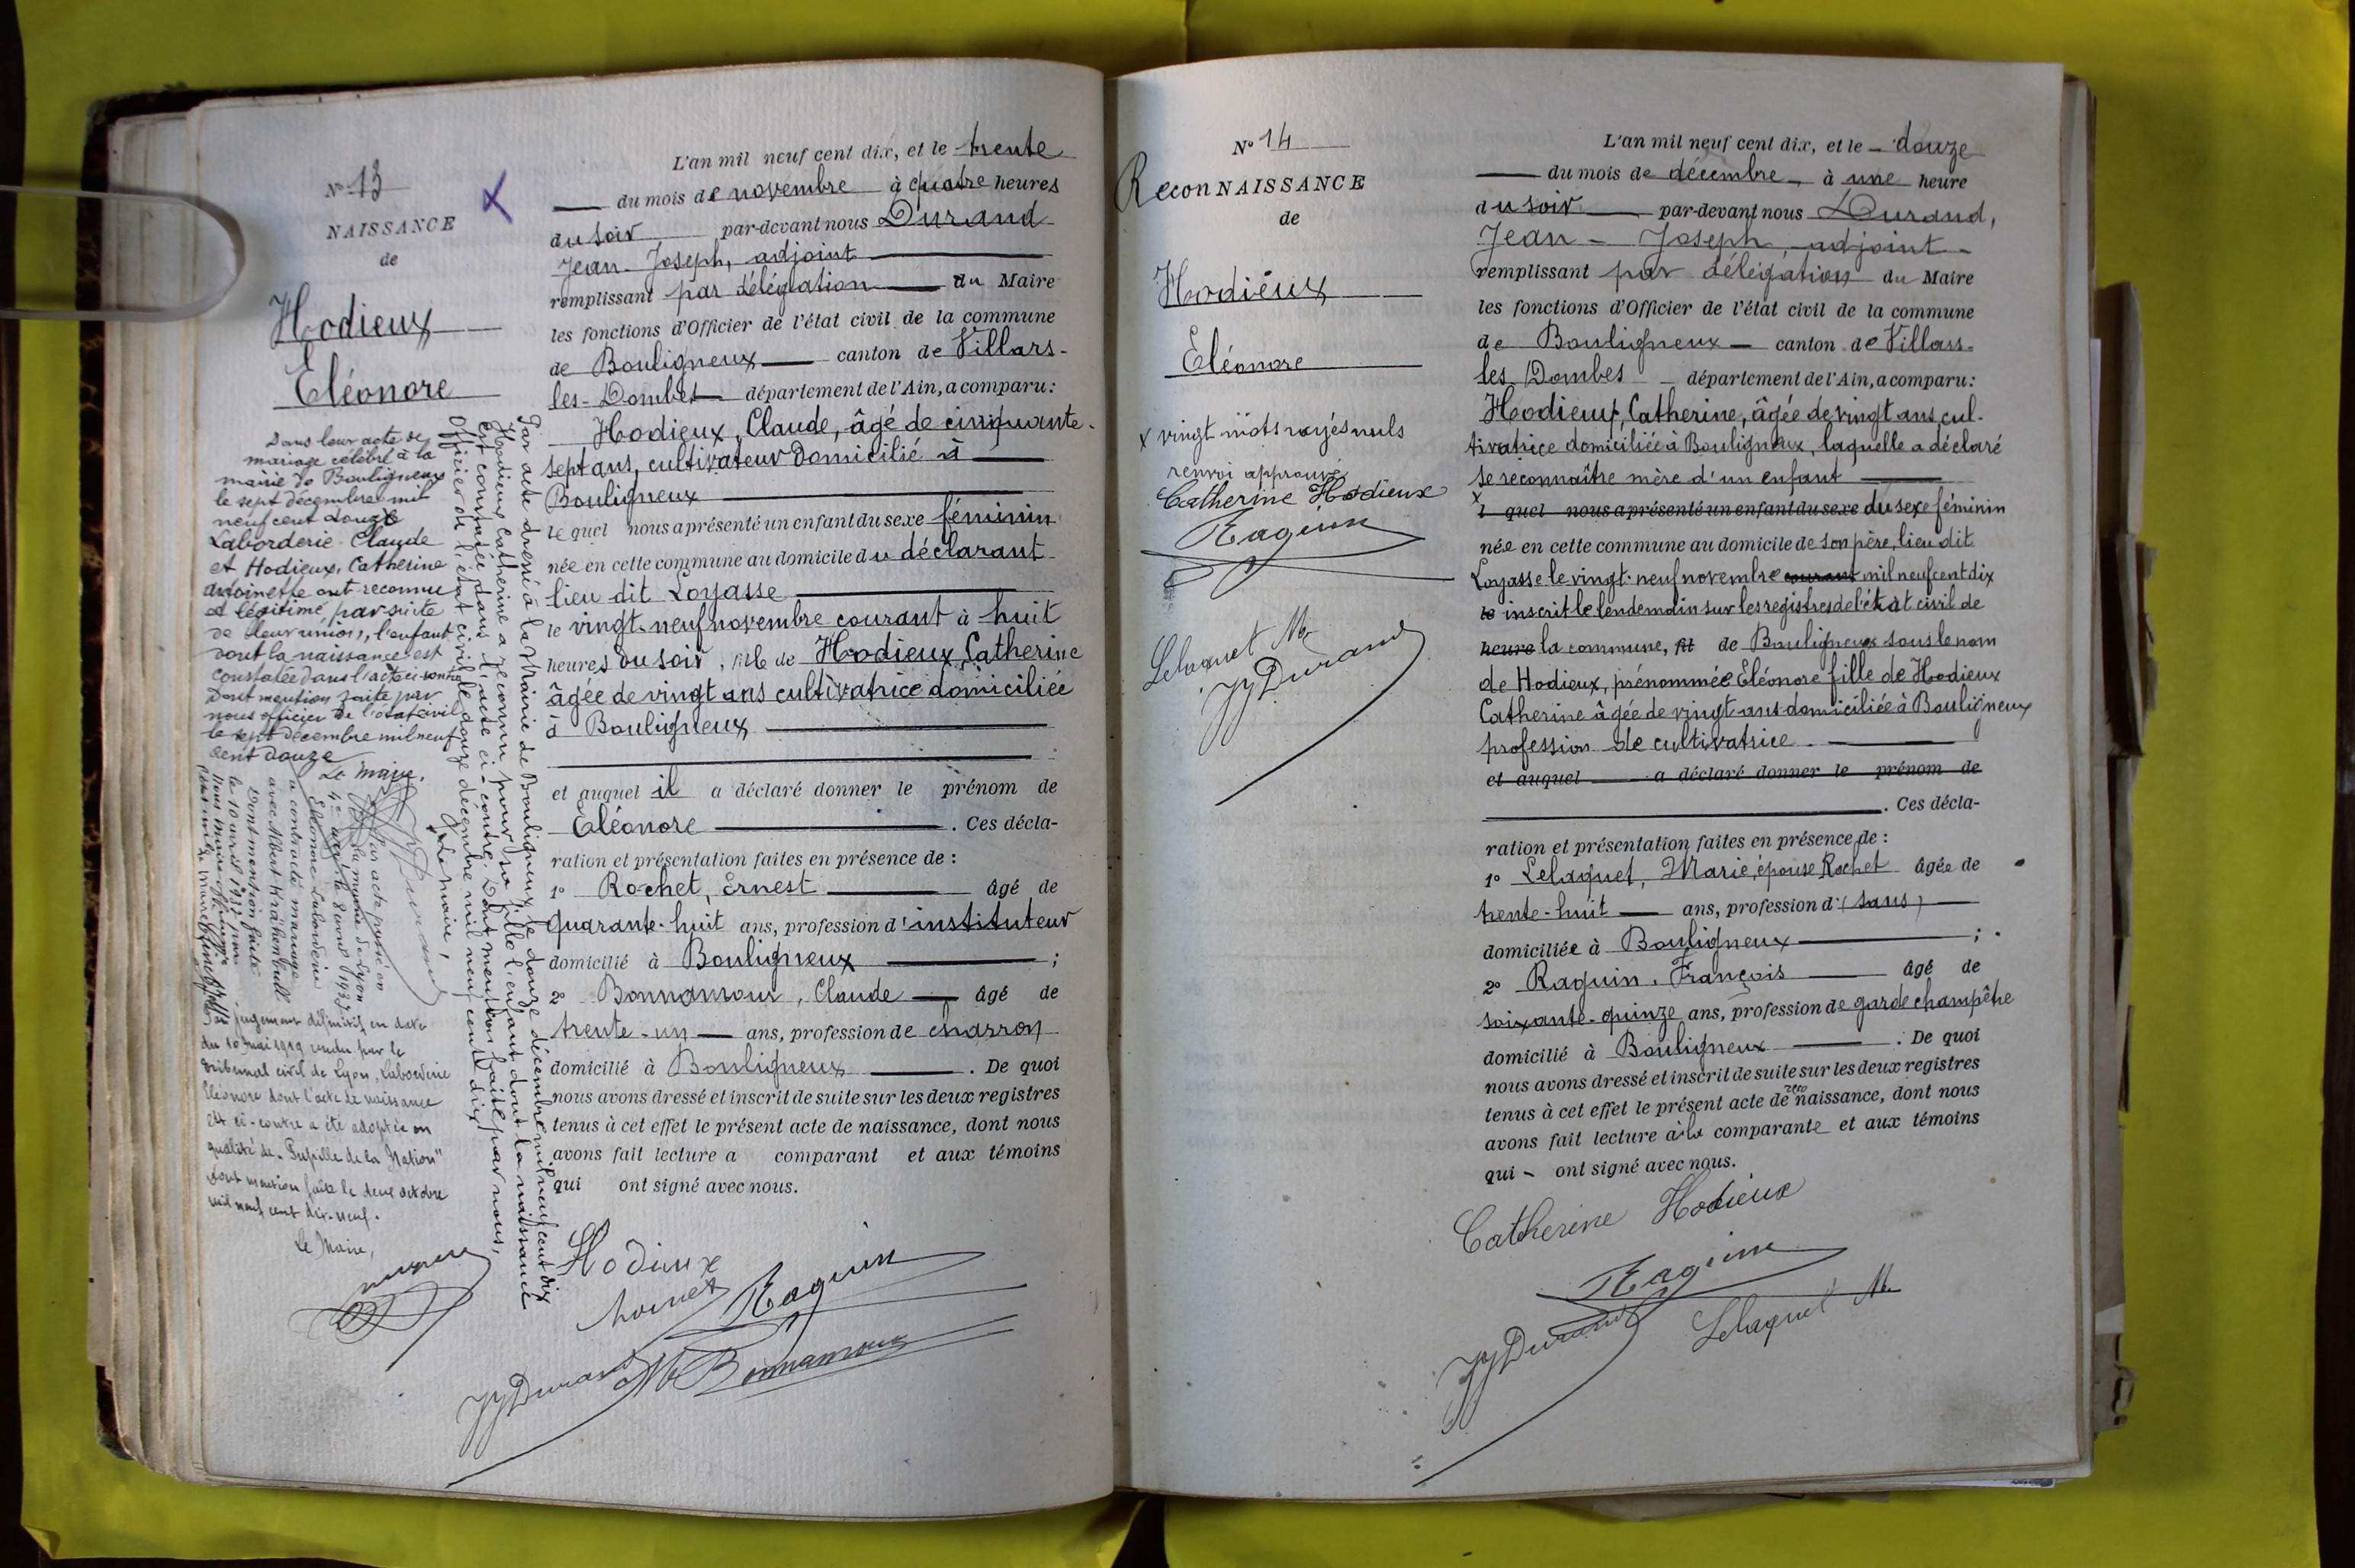 N° 13
NAISSANCE
de
Hodieux
Eléonore
Dans leur acte de
mariage célébré à la
mairie de Bouligneux
le sept décembre mil
neuf cent douze
Laborderie Claude
et Hodieux, Catherine
antoinette ont reconnu
et légitimé, par suite
de leur union, l'enfant
dont la naissance est
constatée dans l'acte ci-contre
Dont mention faite par
nous officier de l'état civil
le sept décembre mil neuf
cent douze
Le maire,
Par acte dressé à la Mairie de Bouligneux le douze décembre mil neuf cent dix
Hodieux Catherine a reconnu pour sa fille l'enfant dont la naissance
est constatée dans l'acte ci-contre. Dont mention faite par nous,
Officier de l'état civil le douze décembre mil neuf cent dix
Le maire,
JJ Durand
Par acte passé en
la mairie de Lyon
4e le 8 avril 1932
Eléonore Laborderie
a contracté mariage
avec Albert Krähenbull
Dont mention faite
le 10 avril 1932 par
Nous maire
Par jugement définitif en date
du 10 mai 1919 rendu par le
tribunal civil de Lyon, Laborderie
Eléonore dont l'acte de naissance
est ci-contre a été adoptée en
qualité de "Pupille de la Nation"
Dont mention faite le deux octobre
mil neuf cent dix-neuf.
Le Maire,
L'an mil neuf cent dix, et le trente
du mois de novembre à quatre heures
du soir par-devant nous Durand
Jean-Joseph, adjoint
remplissant par délégation du Maire
les fonctions d'Officier de l'état civil de la commune
de Bouligneux canton de Villars-
les-Dombes département de l'Ain, a comparu:
Hodieux, Claude, âgé de cinquante-
sept ans, cultivateur domicilié à
Bouligneux
lequel nous a présenté un enfant du sexe féminin
née en cette commune au domicile du déclarant
lieu dit Loyasse
le vingt-neuf novembre courant à huit
heures du soir, fille de Hodieux, Catherine
âgée de vingt ans cultivatrice domiciliée
à Bouligneux
et auquel il a déclaré donner le prénom de
Eléonore . Ces décla-
ration et présentation faites en présence de :
1° Rochet, Ernest âgé de
quarante-huit ans, profession d'instituteur
domicilié à Bouligneux ;
2° Bonnamour, Claude âgé de
trente-un ans, profession de charron
domicilié à Bouligneux . De quoi
nous avons dressé et inscrit de suite sur les deux registres
tenus à cet effet le présent acte de naissance, dont nous
avons fait lecture a comparant et aux témoins
qui ont signé avec nous.
Hodieux
Raguin
JJ Durand
Bonnamour
N° 14
ReconNAISSANCE
de
Hodieux
Eléonore
x vingt mots rayés nuls
renvoi approuvé
Catherine Hodieux
Raguin
Lelaquet M
JJ Durand
L'an mil neuf cent dix, et le douze
du mois de décembre, à une heure
du soir par-devant nous Durand,
Jean-Joseph, adjoint
remplissant par délégation du Maire
les fonctions d'Officier de l'état civil de la commune
de Bouligneux canton de Villars-
les Dombes département de l'Ain, a comparu:
Hodieux, Catherine, âgée de vingt ans, cul-
tivatrice domiciliée à Bouligneux, laquelle a déclaré
se reconnaître mère d'un enfant
x l quel nous a présenté un enfant du sexe du sexe féminin
née en cette commune au domicile de son père, lieu dit
Loyasse le vingt-neuf novembre courant mil neuf cent dix
le inscrit le lendemain sur les registres de l'état civil de
heure la commune, fil de Bouligneux sous le nom
de Hodieux, prénommée Eléonore fille de Hodieux
Catherine âgée de vingt ans domiciliée à Bouligneux
profession de cultivatrice.
et auquel a déclaré donner le prénom de
. Ces décla-
ration et présentation faites en présence de :
1° Lelaquet, Marie, épouse Rochet âgée de
trente-huit ans, profession d (sans)
domiciliée à Bouligneux ;
2° Raguin, François âgé de
soixante-quinze ans, profession de garde champêtre
domicilié à Bouligneux . De quoi
nous avons dressé et inscrit de suite sur les deux registres
tenus à cet effet le présent acte de reconaissance, dont nous
avons fait lecture à la comparante et aux témoins
qui ont signé avec nous.
Catherine Hodieux
Raguin
JJ Durand
Lelaquet M